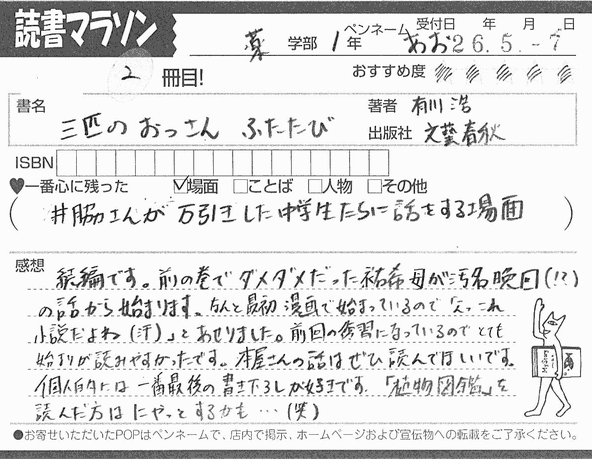 読書マラソン
薬 学部 1年 ペンネーム あお 受付日 年 月 日 26.5.-7
2 冊目! おすすめ度
書名 三匹のおっさん ふたたび 著者 有川 浩
出版社 文藝春秋
ISBN
♥一番心に残った ☑場面 □ことば □人物 □その他
(井脇さんが万引きした中学生たちに話をする場面)
感想 続編です。前の巻でダメダメだった祐希母が汚名晩回(!?)
の話から始まります。なんと最初漫画で始まっているので「えっこれ
小説だよね(汗)」とあせりました。前回の復習になっているのでとても
始まりが読みやすかったです。本屋さんの話はぜひ読んでほしいです。
個人的には一番最後の書き下ろしが好きです。「植物図鑑」を
読んだ方はにやっとするかも…(笑)
●お寄せいただいたPOPはペンネームで、店内で掲示、ホームページおよび宣伝物への転載をご了承ください。